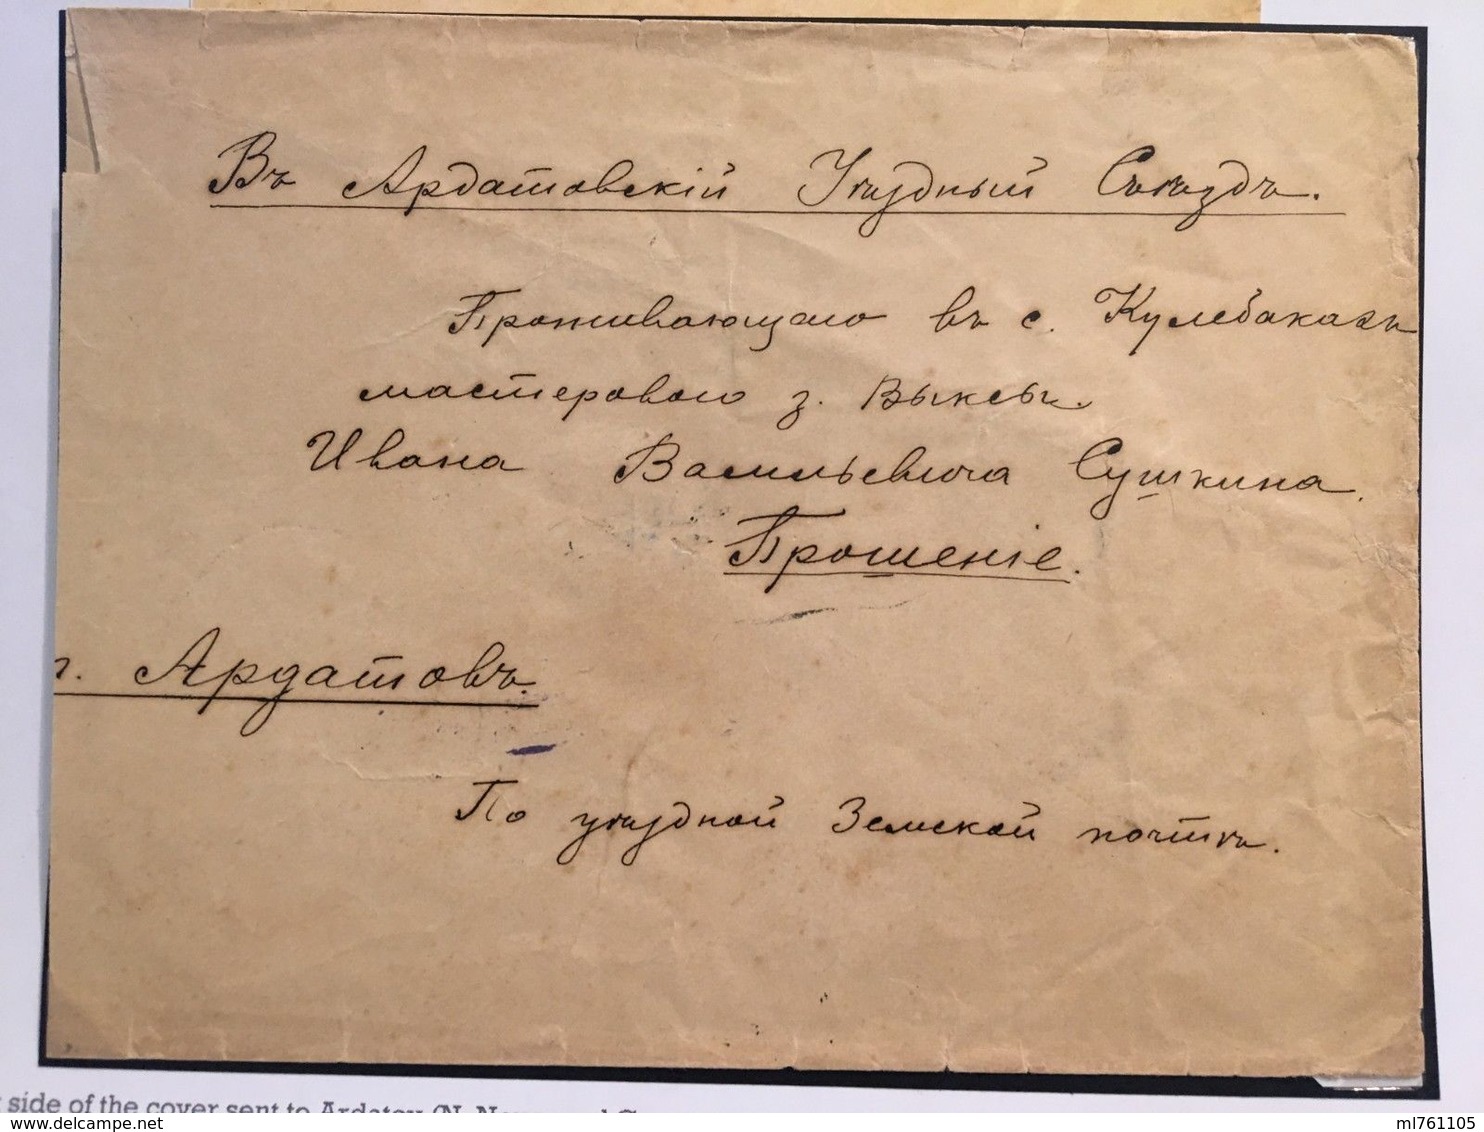 Въ Ардатовскій Уѣздный Съѣздъ.
Проживающаго въ с. Кулебакахъ
мастероваго з. Выксы
Ивана Васильевича Сушкина.
Прошеніе.
г. Ардатовъ.
По уѣздной Земской почтѣ.
side of the cover sent to Ardatov (N.
ml761105